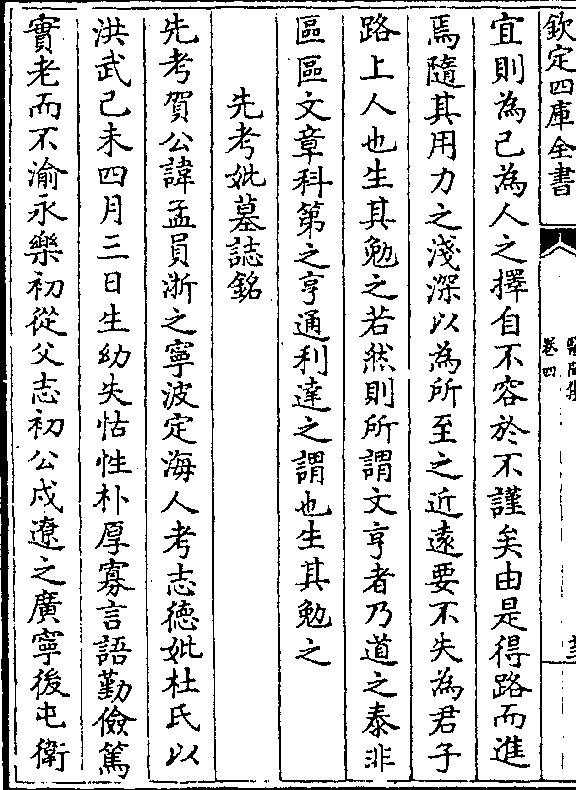 欽定四庫全書
醫閭集
卷四
宜則為己為人之擇自不容於不謹矣由是得路而進
焉隨其用力之淺深以為所至之近遠要不失為君子
路上人也生其勉之若然則所謂文亨者乃道之泰非
區區文章科第之亨通利達之謂也生其勉之
先考妣墓誌銘
先考賀公諱孟員浙之寧波定海人考志德妣杜氏以
洪武己未四月三日生幼失怙性朴厚寡言語勤儉篤
實老而不渝永樂初從父志初公戍遼之廣寧後屯衛